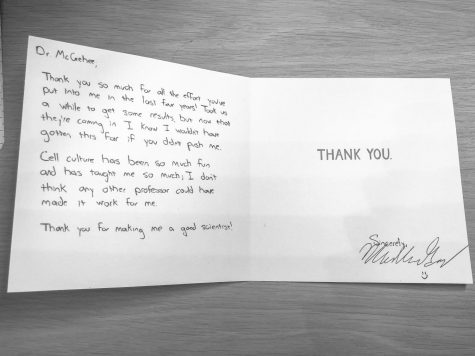 Dr. McGehee,
Thank you so much for all the effort you've
put into me in the last few years! Took us
a while to get some results, but now that
they're coming in I know I wouldn't have
gotten this far if you didn't push me.
Cell culture has been so much fun
and has taught me so much; I don't
think any other professor could have
made it work for me.
Thank you for making me a good scientist!
THANK YOU.
Sincerely,